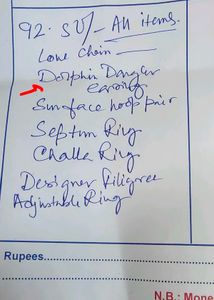 92. SU/- All items.
Lone Chain —
Dolphin Dangler
earring
Surface hoop pair
Septum Ring
Challa Ring
Designer Filigree
Adjustable Ring
Rupees
N.B.: Mone